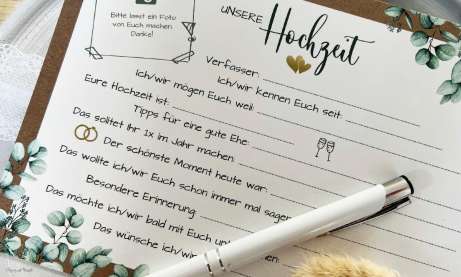 Bitte lasst ein Foto
von Euch machen.
Danke!
UNSERE
Hochzeit
Verfasser:
Ich/wir kennen Euch seit:
Ich/wir mögen Euch weil:
Eure Hochzeit ist:
Tipps für eine gute Ehe:
Das solltet Ihr 1x im Jahr machen:
Der schönste Moment heute war:
Das wollte ich/wir Euch schon immer mal sagen
Besondere Erinnerung
Das möchte ich/wir bald mit Euch
Das wünsche ich/